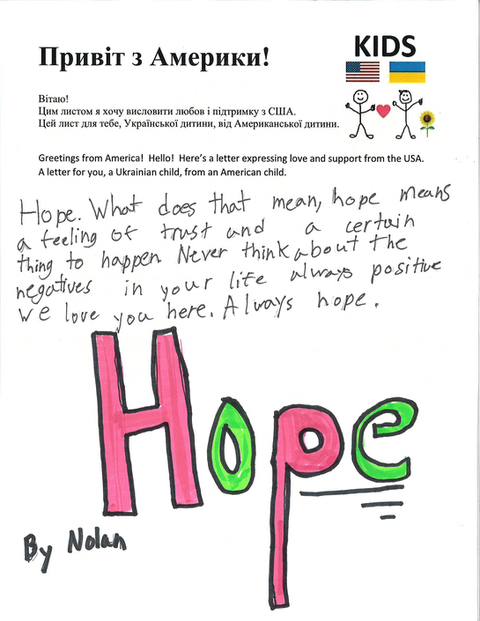 Привіт з Америки!
KIDS
Вітаю!
Цим листом я хочу висловити любов і підтримку з США.
Цей лист для тебе, Української дитини, від Американської дитини.
Greetings from America! Hello! Here's a letter expressing love and support from the USA.
A letter for you, a Ukrainian child, from an American child.
Hope. What does that mean, hope means
a feeling of trust and a certain
thing to happen Never think about the
negatives in your life always positive
We love you here. Always hope.
Hope
By Nolan